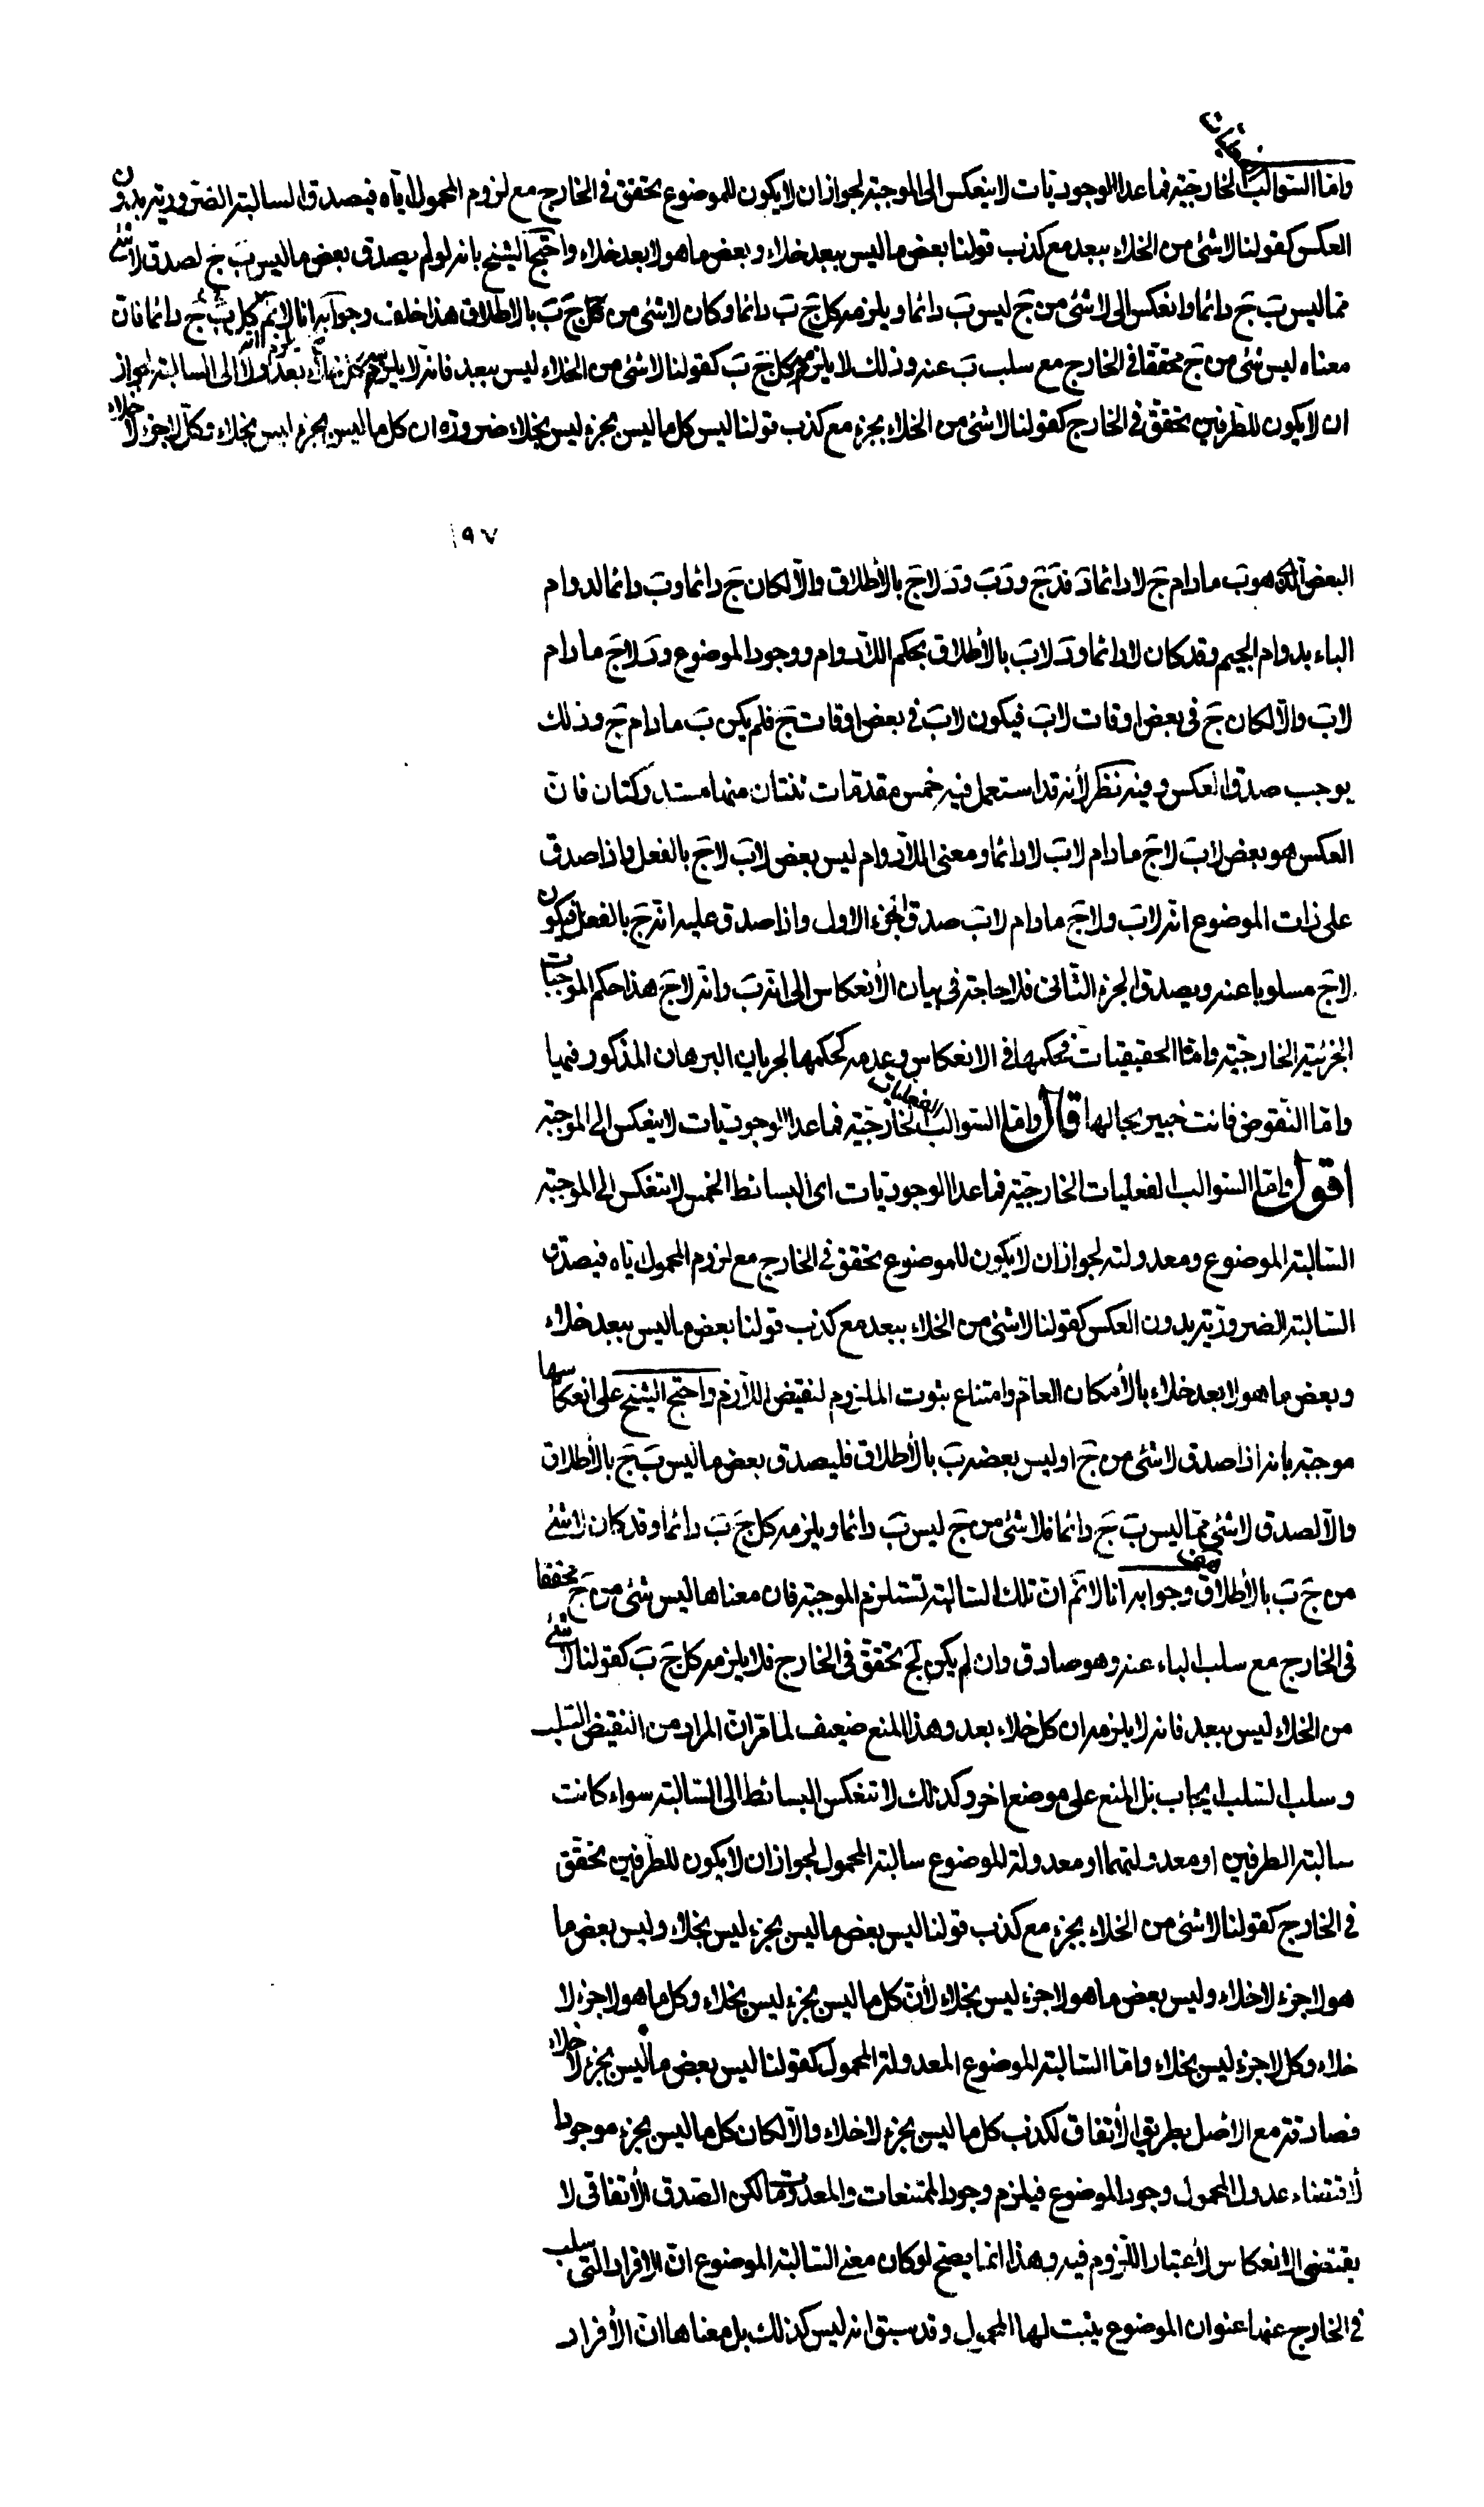 واما السوالب الخارجية فما عدا الوجوديات لا ينعكس الى الموجبة لجواز ان لا يكون للموضوع تحقق في الخارج مع لزوم المحمول اياه فيصدق السالبة الضرورية بدون
العكس كقولنا لا شئ من الخلاء ببعد مع كذب قولنا بعض ما ليس ببعد خلاء وبعض ما هو لا بعد خلاء واحتج الشيخ بانه لو لم يصدق بعض ما ليس بَ جَ لصدق لا شئ
مما ليس بَ جَ دائما وانعكس الى لا شئ من جَ ليس بَ دائما ويلزمه كل جَ بَ دائما وكان لا شئ من جَ بَ بالاطلاق هذا خلف وجوابه انا لا نم كل جَ دائما فان
معناه ليس شئ من جَ محققا في الخارج مع سلب بَ عنه وذلك لا يلزمه كل جَ بَ كقولنا لا شئ من الخلاء ليس ببعد فانه لا يلزمه كل خلاء بعد ولا الى السالبة لجواز
ان لا يكون للطرفين تحقق في الخارج كقولنا لا شئ من الخلاء بجزء مع كذب قولنا ليس كل ما ليس بجزء ليس بخلاء ضرورة ان كل ما ليس بجزء ليس بخلاء وكل لا جزء لا خلاء
١٩٧
البعض الذى هو بَ ما دام جَ لا دائما دَ فدَ جَ ودَ بَ ودَ لا جَ بالأطلاق والا لكان جَ دائما وبَ دائما لدوام
الباء بدوام الجيم وقد كان لا دائما ودَ لا بَ بالأطلاق بحكم اللادوام ووجود الموضوع ودَ لا جَ ما دام
لا بَ والا لكان جَ في بعض اوقات لا بَ فيكون لا بَ في بعض اوقات جَ فلم يكن بَ ما دام جَ وذلك
يوجب صدق العكس وفيه نظر لأنه قد استعمل فيه خمس مقدمات ثنتان منها مستدركتان فان
العكس هو بعض لا بَ لا جَ ما دام لا بَ لا دائما ومعنى اللادوام ليس بعض لا بَ لا جَ بالفعل واذا صدق
على ذات الموضوع انه لا بَ ولا جَ ما دام لا بَ صدق الجزء الاول واذا صدق عليه انه جَ بالفعل فيكون
لا جَ مسلوبا عنه ويصدق الجزء الثاني فلا حاجة في بيان الأنعكاس الى انه بَ وانه لا جَ هذا حكم الموجبات
الجزئية الخارجية واما الحقيقيات فحكمها في الانعكاس وعدمه كحكمها لجريان البرهان المذكور فيها
واما النقوض فانت خبير بحالها قال واما السوالب الفعليات الخارجية فما عدا الوجوديات لا ينعكس الى الموجبة
اقول واما السوالب الفعليات الخارجية فما عدا الوجوديات اى البسائط الخمس لا تنعكس الى الموجبة
السالبة الموضوع ومعدولته لجواز ان لا يكون للموضوع تحقق في الخارج مع لزوم المحمول اياه فيصدق
السالبة الضرورية بدون العكس كقولنا لا شئ من الخلاء ببعد مع كذب قولنا بعض ما ليس ببعد خلاء
وبعض ما هو لا بعد خلاء بالأمكان العام وامتناع ثبوت الملزوم لنقيض اللازم واحتج الشيخ على انعكاسها
موجبة بانه اذا صدق لا شئ من جَ او ليس بعضه بَ بالأطلاق فليصدق بعض ما ليس بَ جَ بالأطلاق
والا لصدق لا شئ مما ليس بَ جَ دائما فلا شئ من جَ ليس بَ دائما ويلزمه كل جَ بَ دائما وقد كان لا شئ
من جَ بَ بالأطلاق هف وجوابه انا لا نم ان تلك السالبة تستلزم الموجبة فان معناها ليس شئ من جَ محققا
في الخارج مع سلب الباء عنه وهو صادق وان لم يكن لجَ تحقق في الخارج فلا يلزمه كل جَ بَ كقولنا لا شئ
من الخلاء ليس ببعد فانه لا يلزمه ان كل خلاء بعد وهذا المنع ضعيف لما مر ان المراد من النقيض السلب
وسلب السلب ايجاب بل المنع على موضع اخر وكذلك لا تنعكس البسائط الى السالبة سواء كانت
سالبة الطرفين او معدولتهما او معدولة الموضوع سالبة المحمول لجواز ان لا يكون للطرفين تحقق
في الخارج كقولنا لا شئ من الخلاء بجزء مع كذب قولنا ليس بعض ما ليس بجزء ليس بخلاء وليس بعض ما
هو لا جزء لا خلاء وليس بعض ما هو لا جزء ليس بخلاء لأن كل ما ليس بجزء ليس بخلاء وكل ما هو لا جزء لا
خلاء وكل لا جزء ليس بخلاء واما السالبة الموضوع المعدولة المحمول كقولنا ليس بعض ما ليس بجزء لا خلاء
فصادقة مع الاصل بطريق الأتفاق لكذب كل ما ليس بجزء لا خلاء والا لكان كل ما ليس بجزء موجودا
لأقتضاء عدول المحمول وجود الموضوع فيلزم وجود الممتنعات والمعدومات لكن الصدق الأتفاقى لا
يقتضى الانعكاس لأعتبار اللزوم فيه وهذا انما يصح لو كان معنى السالبة الموضوع ان الافراد التى سلب
في الخارج عنها عنوان الموضوع يثبت لها المحمول وقد سبق انه ليس كذلك بل معناها ان الأفراد